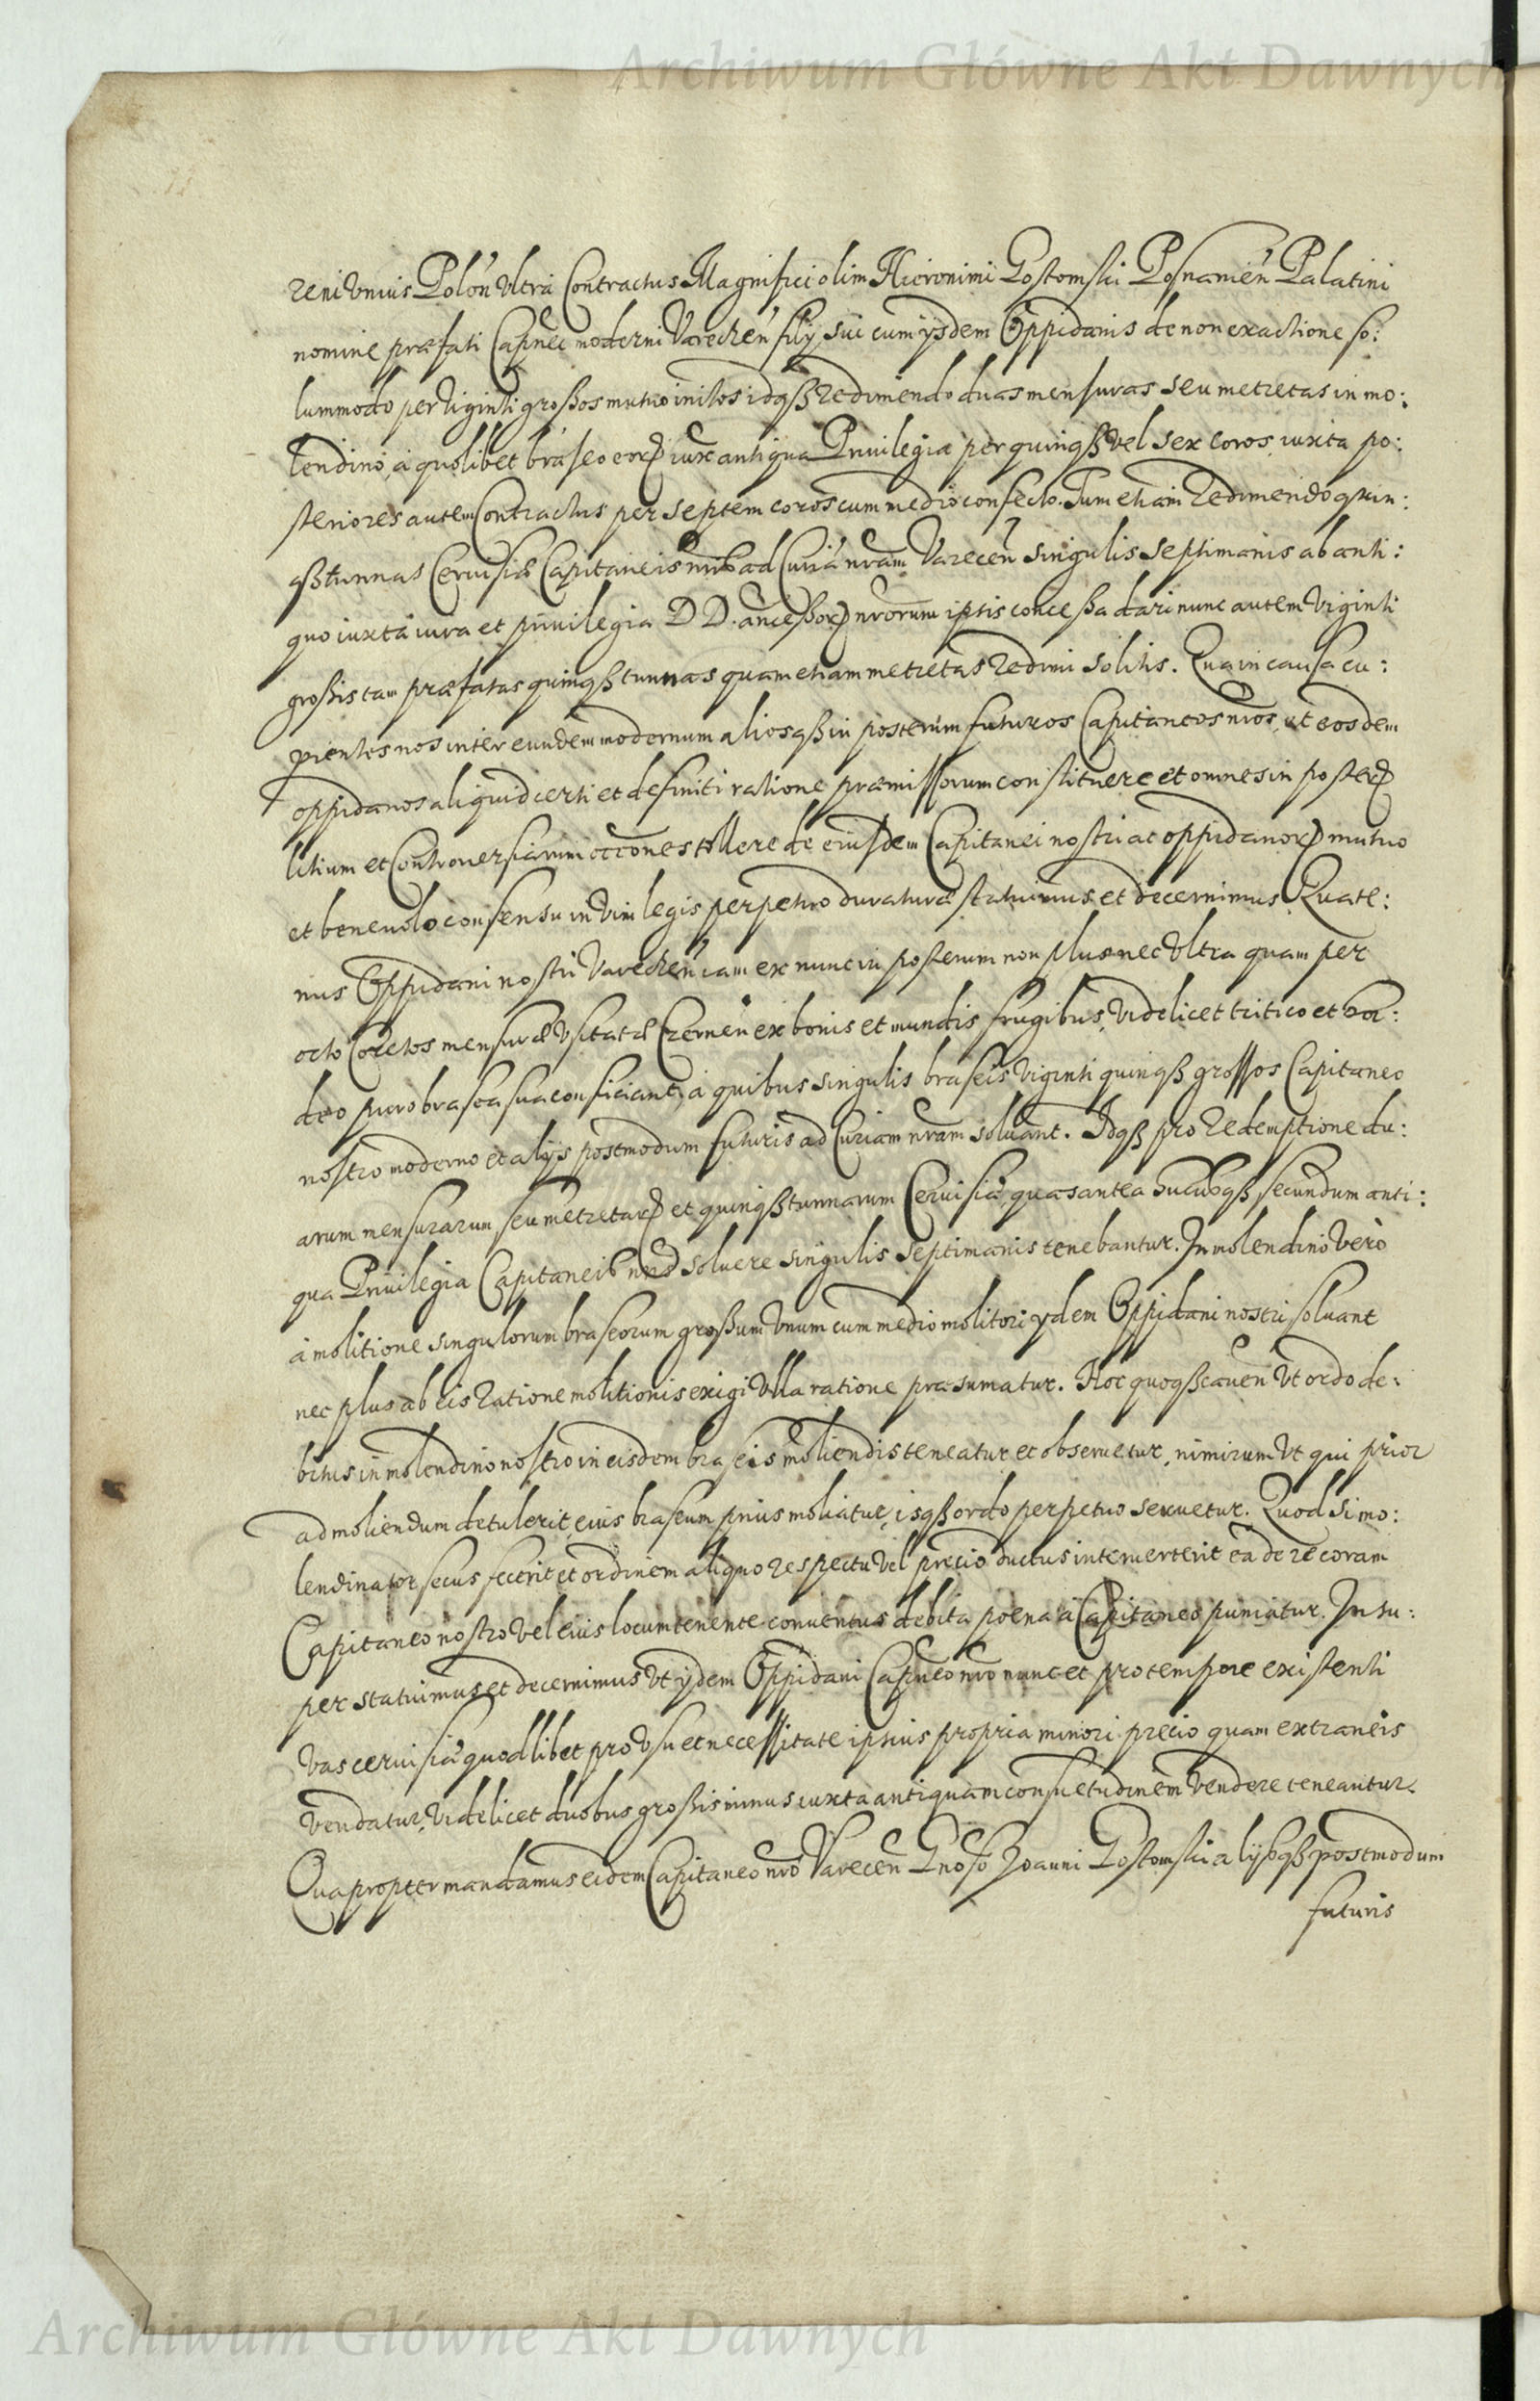 Archiwum Główne Akt Dawnych
reni vnius Polon vltra Contractus Magnifici olim Hieronimi Gostomski Posnanien Palatini
nomine præfati Capnei moderni Varecken filij sui cum ijsdem Oppidanis de non exactione so:
lummodo per viginti großos mutuo initos idqß redimendo duas mensuras seu metretas in mo:
lendino, à quolibet braseo eorum iuxc antiqua Priuilegia per quinqß vel sex coros, iuxta po:
steriores autem Contractus per septem coros cum medio confecto. Tum etiam redimendo quin:
qß tunnas Ceruisiæ Capitaneis nris ad Curiã nram Varecen singulis septimanis ab anti:
quo iuxta iura et priuilegia D D. anceßorum nrorum ipsis conceßa dari nunc autem viginti
großis tam præfatas quinqß tunnas quam etiam metretas redimi solitis. Qua in causa cu:
pientes nos inter eundem modernum aliosqß in posterum futuros Capitaneos nros, et eosdem
oppidanos aliquid certi et definiti ratione præmissorum constituere et omnes in posterum
litium et Controuersiarum occones tollere de eiusdem Capitanei nostri ac oppidanorum mutuo
et beneuolo consensu in vim legis perpetuo duraturæ statuimus et decernimus Quate:
nus Oppidani nostri Varecken iam ex nunc in posterum non plus nec vltra quam per
octo Coretos mensuræ vsitatæ Czernen ex bonis et mundis frugibus, videlicet tritico et hor:
deo puro brasea sua conficiant, à quibus singulis braseis viginti quinqß grossos Capitaneo
nostro moderno et alijs postmodum futuris ad Curiam nram soluant. Idqß pro redemptione du:
arum mensurarum seu metretarum et quinqß tunnarum Ceruisiæ, quas antea hucusqß secundum anti:
qua Priuilegia Capitaneis nris soluere singulis septimanis tenebantur. In molendino verò
à molitione singulorum braseorum großum vnum cum medio molitori ydem Oppidani nostri soluant
nec plus ab eis ratione molitionis exigi vlla ratione præsumatur. Hoc quoqß cauen vt ordo de:
bitus in molendino nostro in eisdem braseis moliendis teneatur et obseruetur, nimirum vt qui prior
ad moliendum detulerit eius braseum prius moliatur, isqß ordo perpetuo seruetur. Quod si mo:
lendinator secus fecerit et ordinem aliquo respectu vel precio ductus interuerterit ea de re coram
Capitaneo nostro vel eius locumtenente conuentus debita poena à Capitaneo puniatur. Insu:
per statuimus et decernimus vt ydem Oppidani Capneo nro nunc et pro tempore existenti
vas ceruisiæ quodlibet pro vsu et necessitate ipsius propria minori precio quam extraneis
vendatur, videlicet duobus großis minus iuxta antiquam consuetudinem vendere teneantur.
Quapropter mandamus eidem Capitaneo nro Varecen Gnoso Joanni Gostomski alijsqß postmodum
futuris
Archiwum Główne Akt Dawnych